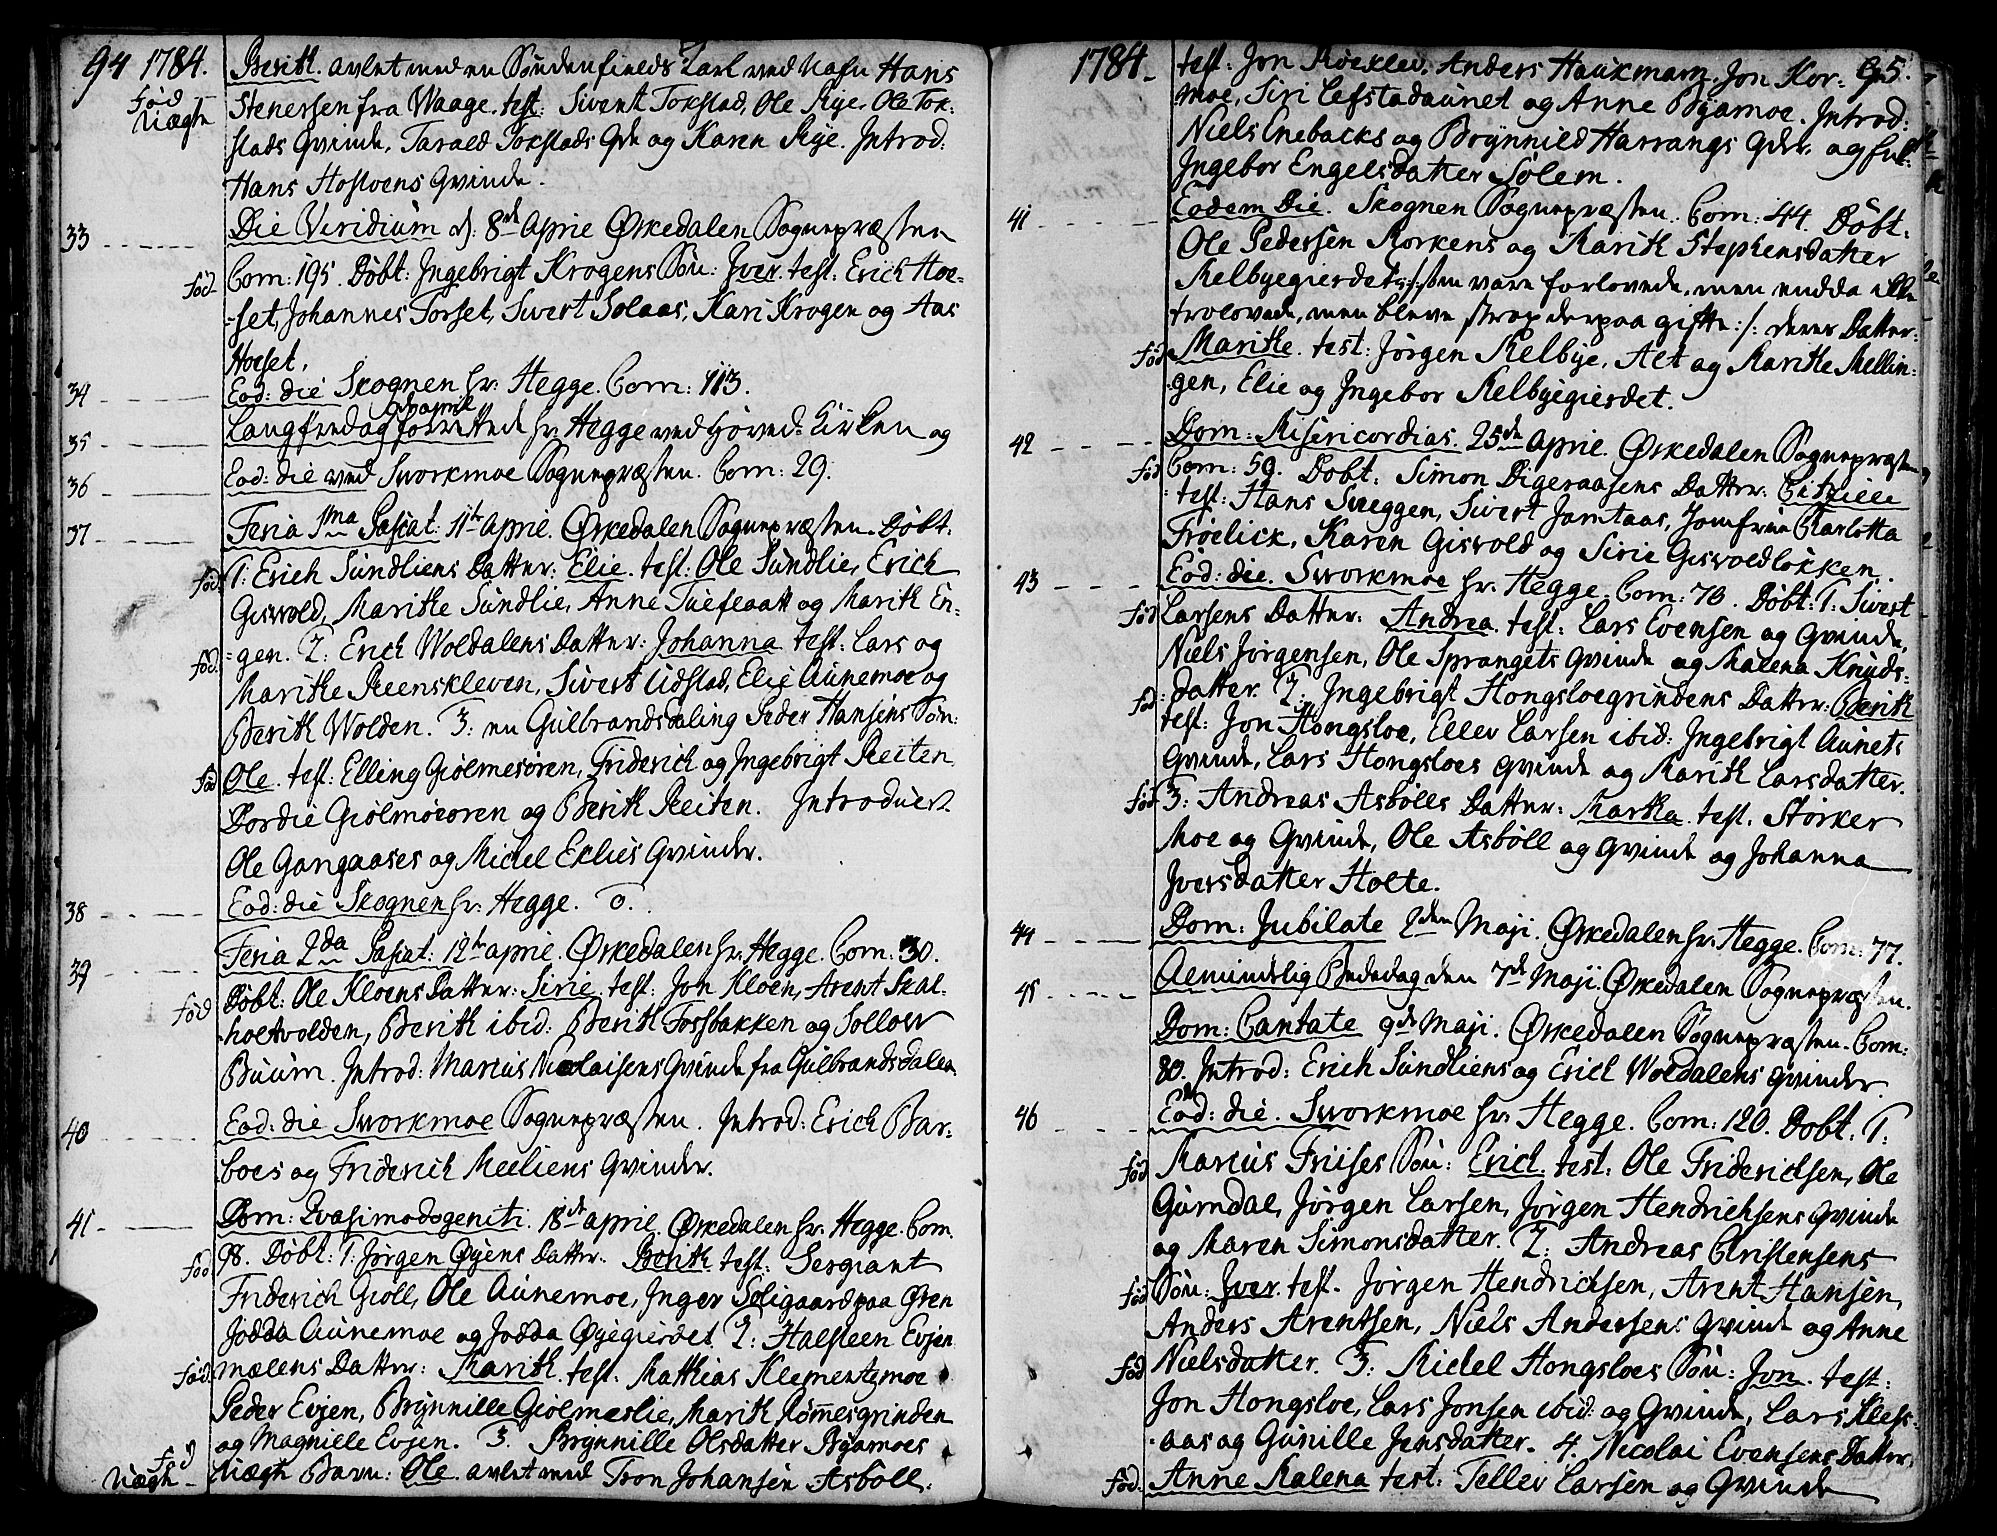 94 1784. Berith. avlet med en Søndenfields Karl ved Nafn Hans
Fød Stenersen fra Waage. test: Sivert Tokstad, Ole Rye, Ole Tok:
Uægte stads Qvinde, Tarald Tokstads Qde og Karen Rye. Introd:
Hans Hosloens Qvinde.
33 Die Viridium d. 8de Aprie Ørkedalen Sognepræsten
fød Com: 195. Døbt: Ingebrigt Krogens Søn: Iver. test: Erich Hoe-
-set, Johannes Forset, Sivert Solaas, Kari Krogen og Aas
Hoeset.
34 Eod: die Skognen hr. Hegge. Com: 113.
35 Langfredag forrettede hr. Hegge ved Hoved-Kirken og
36 Eod: die ved Sworkmoe Sognepræsten. Com: 29.
37 Feria 1ma Pascat: 11te Aprie. Ørkedalen Sognepræsten. Døbt.
fød 1: Erich Sundliens Datter: Elie. test: Ole Sundlie, Erich
Gisvold, Marithe Sundlie, Anne Tuefloatt og Marith En-
fød -gen. 2: Erich Woldalens Datter: Johanna test: Lars og
Marithe Reenskleven, Sivert Udstad, Elie Aunemoe og
Berith Wolden. 3: en Gulbrandsdaling Peder Hansens Søn:
fød Ole. test: Elling Giølmesøren, Friderich og Ingebrigt Reiten
Dordie Giølmøeoren og Berith Reiten. Introducert
Ole Gangaases og Michel Eclies Qvinder.
38 Eod: die Skognen hr. Hegge. 0.
39 Feria 2da Pascat: 12te aprie. Ørkedalen hr. Hegge. Com: 30.
fød Døbt: Ole Kloens Datter: Sirie. test: Jon Kloen, Arent Skal-
-hoetvolden, Berith ibid: Berith Fossbakken og Sollow
Buum. Introd: Marcus Nicolaisens Qvinde fra Gulbrandsdalen
40 Eod: die Sworkmoe Sognepræsten. Introd: Erich Bar-
boes og Friderich Meeliens Qvinder.
41 Dom: Qvasimodogeniti. 18de april Ørkedalen hr. Hegge. Com.
fød 98. Døbt: 1. Jørgen Øyens Datter: Berith. test: Sergiant
Friderich Gioll, Ole Aunemoe, Inger Soligaard paa Øren
Jodda Aunemoe og Jodda Øyegierdet. 2: Halsteen Evjen
fød mælens Datter: Marith. test: Mathias Klementzmoe
Peder Evjen, Brynnille Giølmeslie, Marith Rømmesgrinden
og Magnille Evjen. 3. Brynnille Olsdatter Byamoes
fød Uægte Uægte Barn: Ole. avlet med Tron Johansen Asbøll.
1784. test: Jon Røeklev, Anders Haukmarn. Jon Kor= 95.
moe, Siri Lefstadaunet og Anne Byamoe. Introd:
Niels Enebacks og Brynnild Harrangs Qdr. og
Ingebor Engelsdatter Solem.
41 Eodem Die. Skognen Sognepræsten. Com: 44. Døbt.
Ole Pedersen Korkens og Marith Stephensdatter
Kelbyegierdet /: som vare forlovede, men endda ikke
trolovede, men bleve strax derpaa gifte :/ deres Datter:
fød Marithe. test: Jørgen Kelbye, Alt og Marithe Mellin:
gen, Elie og Ingebor Kelbyegierdet.
42 Dom: Misericordias. 25de Aprie. Ørkedalen Sognepræsten
fød Com: 59. Døbt: Simon Digeraasens Datter: Citzilie
test: Hans Sneggen, Sivert Jamtaas, Jomfrue Charlotta
Frøelick, Karen Gisvold og Sirie Gisvoldløkken.
43 Eod: die. Sworkmoe hr. Hegge. Com: 70. Døbt: 1. Sivert
fød Larsens Datter: Andrea. test: Lars Evensen og Qvinde,
Niels Jørgensen, Ole Sprangets Qvinde og Malena Knuds-
fød datter. 2: Ingebrigt Hongsloegrindens Datter: Berith
test: Jon Hongsloe, Ellev Larsen ibid: Ingebrigt Aunets
Qvinde, Lars Hongsloes Qvinde og Marith Larsdatter.
fød 3: Andreas Asbølls Datter: Martha. test. Størker
Moe og Qvinde, Ole Asbøll og Qvinde og Johanna
Iversdatter Holte.
44 Dom: Jubilate 2den Maji. Ørkedalen hr. Hegge. Com: 77.
45 Almindelig Bededag den 7de Maji. Ørkedalen Sognepræsten.
Dom: Cantate 9de Maji. Ørkedalen Sognepræsten. Com:
80. Introd: Erich Sundliens og Erich Woldalens Qvinder
46 Eod: die. Sworkmoe hr. Hegge. Com: 120. Døbt. 1:
fød Marcus Friises Søn: Erich. test: Ole Friderichsen, Ole
Garndal, Jørgen Larsen, Jørgen Hendrichsens Qvinde
og Maren Simonsdatter. 2: Andreas Christensens
fød Søn: Iver. test. Jørgen Hendrichsen, Arent Hansen,
Anders Arentsen, Niels Andersens Qvinde og Anne
fød Nielsdatter. 3: Michel Hongsloes Søn: Jon. test:
Jon Hongsloe, Lars Jonsen ibid: og Qvinde, Lars Klefs-
-aas og Gunille Jensdatter. 4. Nicolai Evensens Datter,
fød. Anne Malena test: Tellev Larsen og Qvinde